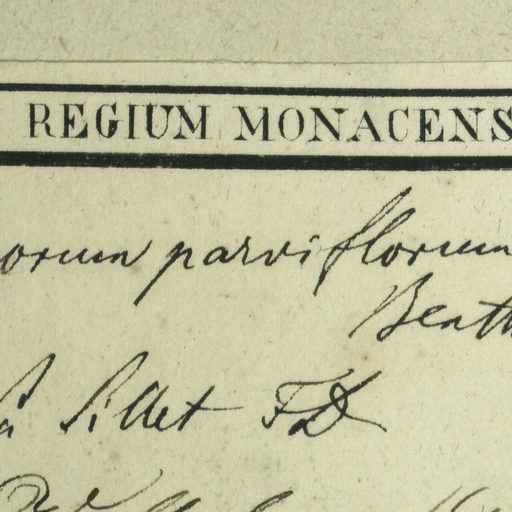 REGIUM MONACENS
orum parviflorum
Benth
Sillet FD